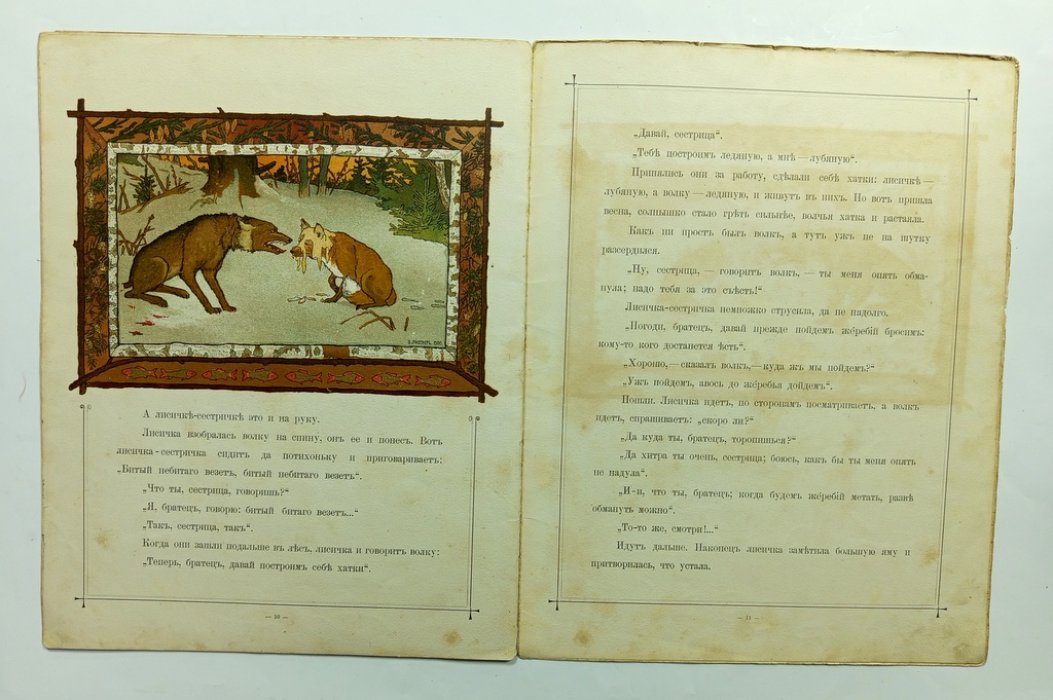 А лисичкѣ-сестричкѣ это и на руку.
Лисичка взобралась волку на спину, онъ ее и понесъ. Вотъ
лисичка-сестричка сидитъ да потихоньку и приговариваетъ:
„Битый небитаго везетъ, битый небитаго везетъ“.
„Что ты, сестрица, говоришь?“
„Я, братецъ, говорю: битый битаго везетъ...“
„Такъ, сестрица, такъ“.
Когда они зашли подальше въ лѣсъ, лисичка и говоритъ волку:
„Теперь, братецъ, давай построимъ себѣ хатки“.
— 10 —
„Давай, сестрица“.
„Тебѣ построимъ ледяную, а мнѣ — лубяную“.
Принялись они за работу, сдѣлали себѣ хатки: лисичкѣ —
лубяную, а волку — ледяную, и живутъ въ нихъ. Но вотъ пришла
весна, солнышко стало грѣть сильнѣе, волчья хатка и растаяла.
Какъ ни простъ былъ волкъ, а тутъ ужъ не на шутку
разсердился.
„Ну, сестрица, — говоритъ волкъ, — ты меня опять обма-
нула; надо тебя за это съѣсть!“
Лисичка-сестричка немножко струсила, да не надолго.
„Погоди, братецъ, давай прежде пойдемъ жеребій бросимъ:
кому-то кого достанется ѣсть“.
„Хорошо,— сказалъ волкъ,— куда жъ мы пойдемъ?“
„Ужъ пойдемъ, авось до жеребья дойдемъ“.
Пошли. Лисичка идетъ, по сторонамъ посматриваетъ, а волкъ
идетъ, спрашиваетъ: „скоро ли?“
„Да куда ты, братецъ, торопишься?“
„Да хитра ты очень, сестрица; боюсь, какъ бы ты меня опять
не надула“.
„И-и, что ты, братецъ; когда будемъ жеребій метать, развѣ
обмануть можно“.
„То-то же, смотри!...“
Идутъ дальше. Наконецъ лисичка замѣтила большую яму и
притворилась, что устала.
— 11 —